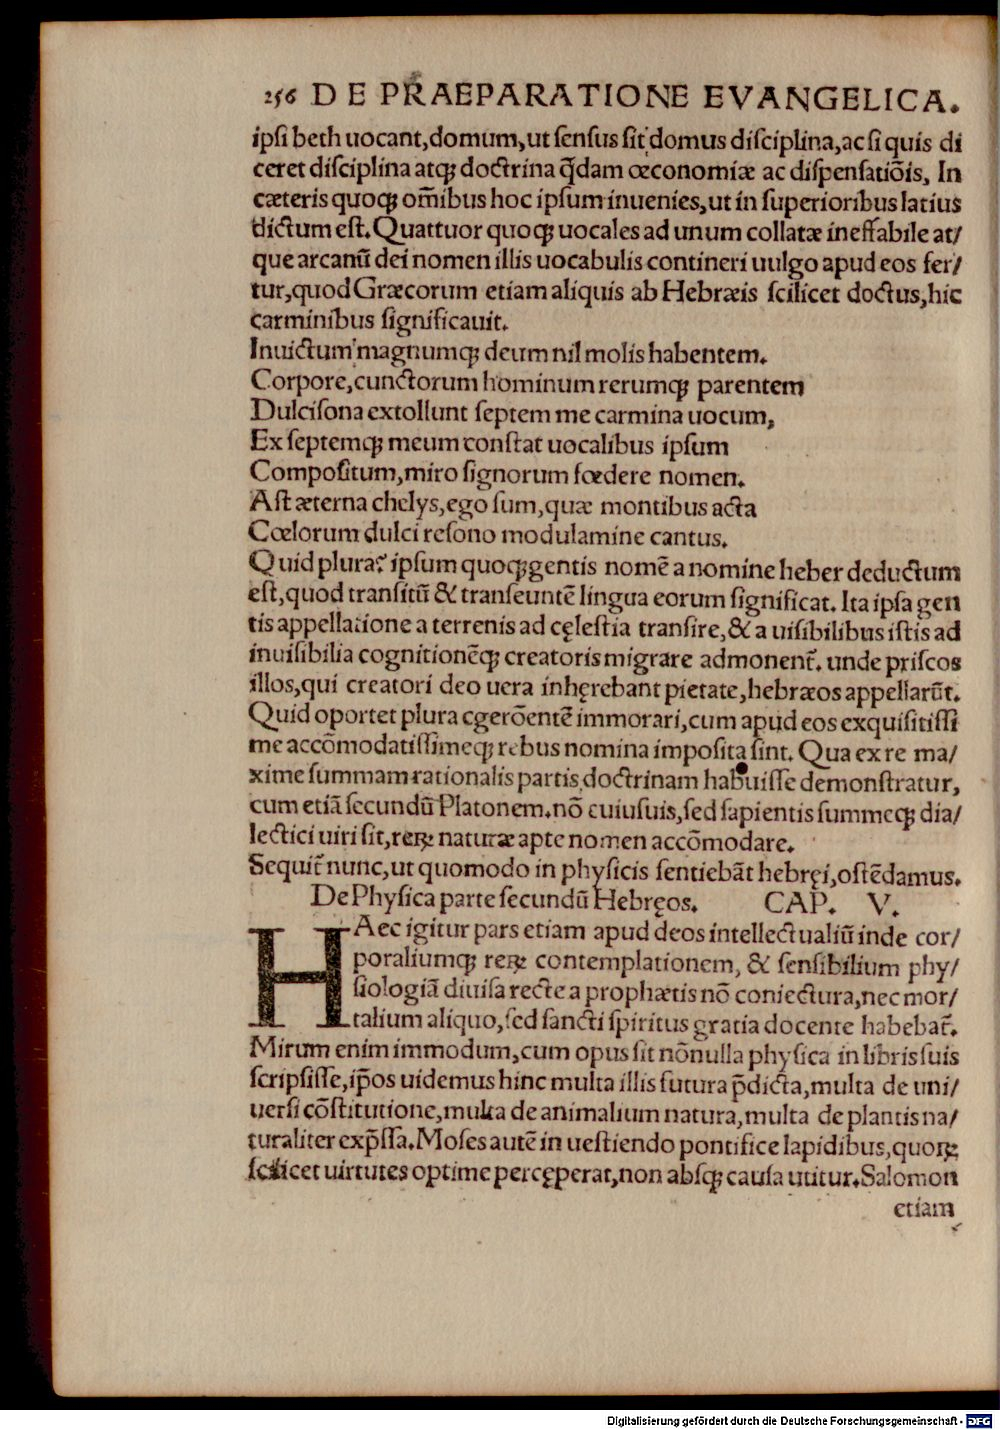 256 DE PRAEPARATIONE EVANGELICA.
ipsi beth uocant,domum,ut sensus sit domus disciplina,ac si quis di
ceret disciplina atqꝫ doctrina q̄dam œconomiæ ac dispensatiōis, In
cæteris quoqꝫ om̄ibus hoc ipsum inuenies,ut in superioribus latius
dictum est.Quattuor quoqꝫ uocales ad unum collatæ ineffabile at/
que arcanū dei nomen illis uocabulis contineri uulgo apud eos fer/
tur,quod Græcorum etiam aliquis ab Hebræis scilicet doctus,hic
carminibus significauit.
Inuictum magnumqꝫ deum nil molis habentem.
Corpore,cunctorum hominum rerumqꝫ parentem
Dulcisona extollunt septem me carmina uocum,
Ex septemqꝫ meum constat uocalibus ipsum
Compositum,miro signorum fœdere nomen.
Ast æterna chelys,ego sum,quæ montibus acta
Cœlorum dulci resono modulamine cantus.
Quid plura? ipsum quoqꝫ gentis nomē a nomine heber deductum
est,quod transitū & transeuntē lingua eorum significat. Ita ipsa gen
tis appellatione a terrenis ad cęlestia transire,& a uisibilibus istis ad
inuisibilia cognitionēqꝫ creatoris migrare admonent̄. unde priscos
illos,qui creatori deo uera inhęrebant pietate,hebræos appellarūt.
Quid oportet plura cgerōentē immorari,cum apud eos exquisitissi
me accōmodatissimeqꝫ rebus nomina imposita sint. Qua ex re ma/
xime summam rationalis partis doctrinam habuisse demonstratur,
cum etiā secundū Platonem.nō cuiusuis,sed sapientis summeqꝫ dia/
lectici uiri sit,reꝝ naturæ apte nomen accōmodare.
Sequit̄ nunc,ut quomodo in physicis sentiebāt hebręi,ostēdamus.
De Physica parte secundū Hebręos. CAP. V.
HAec igitur pars etiam apud deos intellectualiū inde cor/
poraliumqꝫ reꝝ contemplationem, & sensibilium phy/
siologiā diuisa recte a prophætis nō coniectura,nec mor/
talium aliquo,sed sancti spiritus gratia docente habebat̄.
Mirum enim immodum,cum opus sit nōnulla physica in libris suis
scripsisse,ip̄os uidemus hinc multa illis futura p̄dicta,multa de uni/
uersi cōstitutione,multa de animalium natura,multa de plantis na/
turaliter exp̄ssa.Moses autē in uestiendo pontifice lapidibus,quoꝝ
scilicet uirtutes optime percęperat,non absqꝫ causa utitur.Salomon
etiam
Digitalisierung gefördert durch die Deutsche Forschungsgemeinschaft - DFG